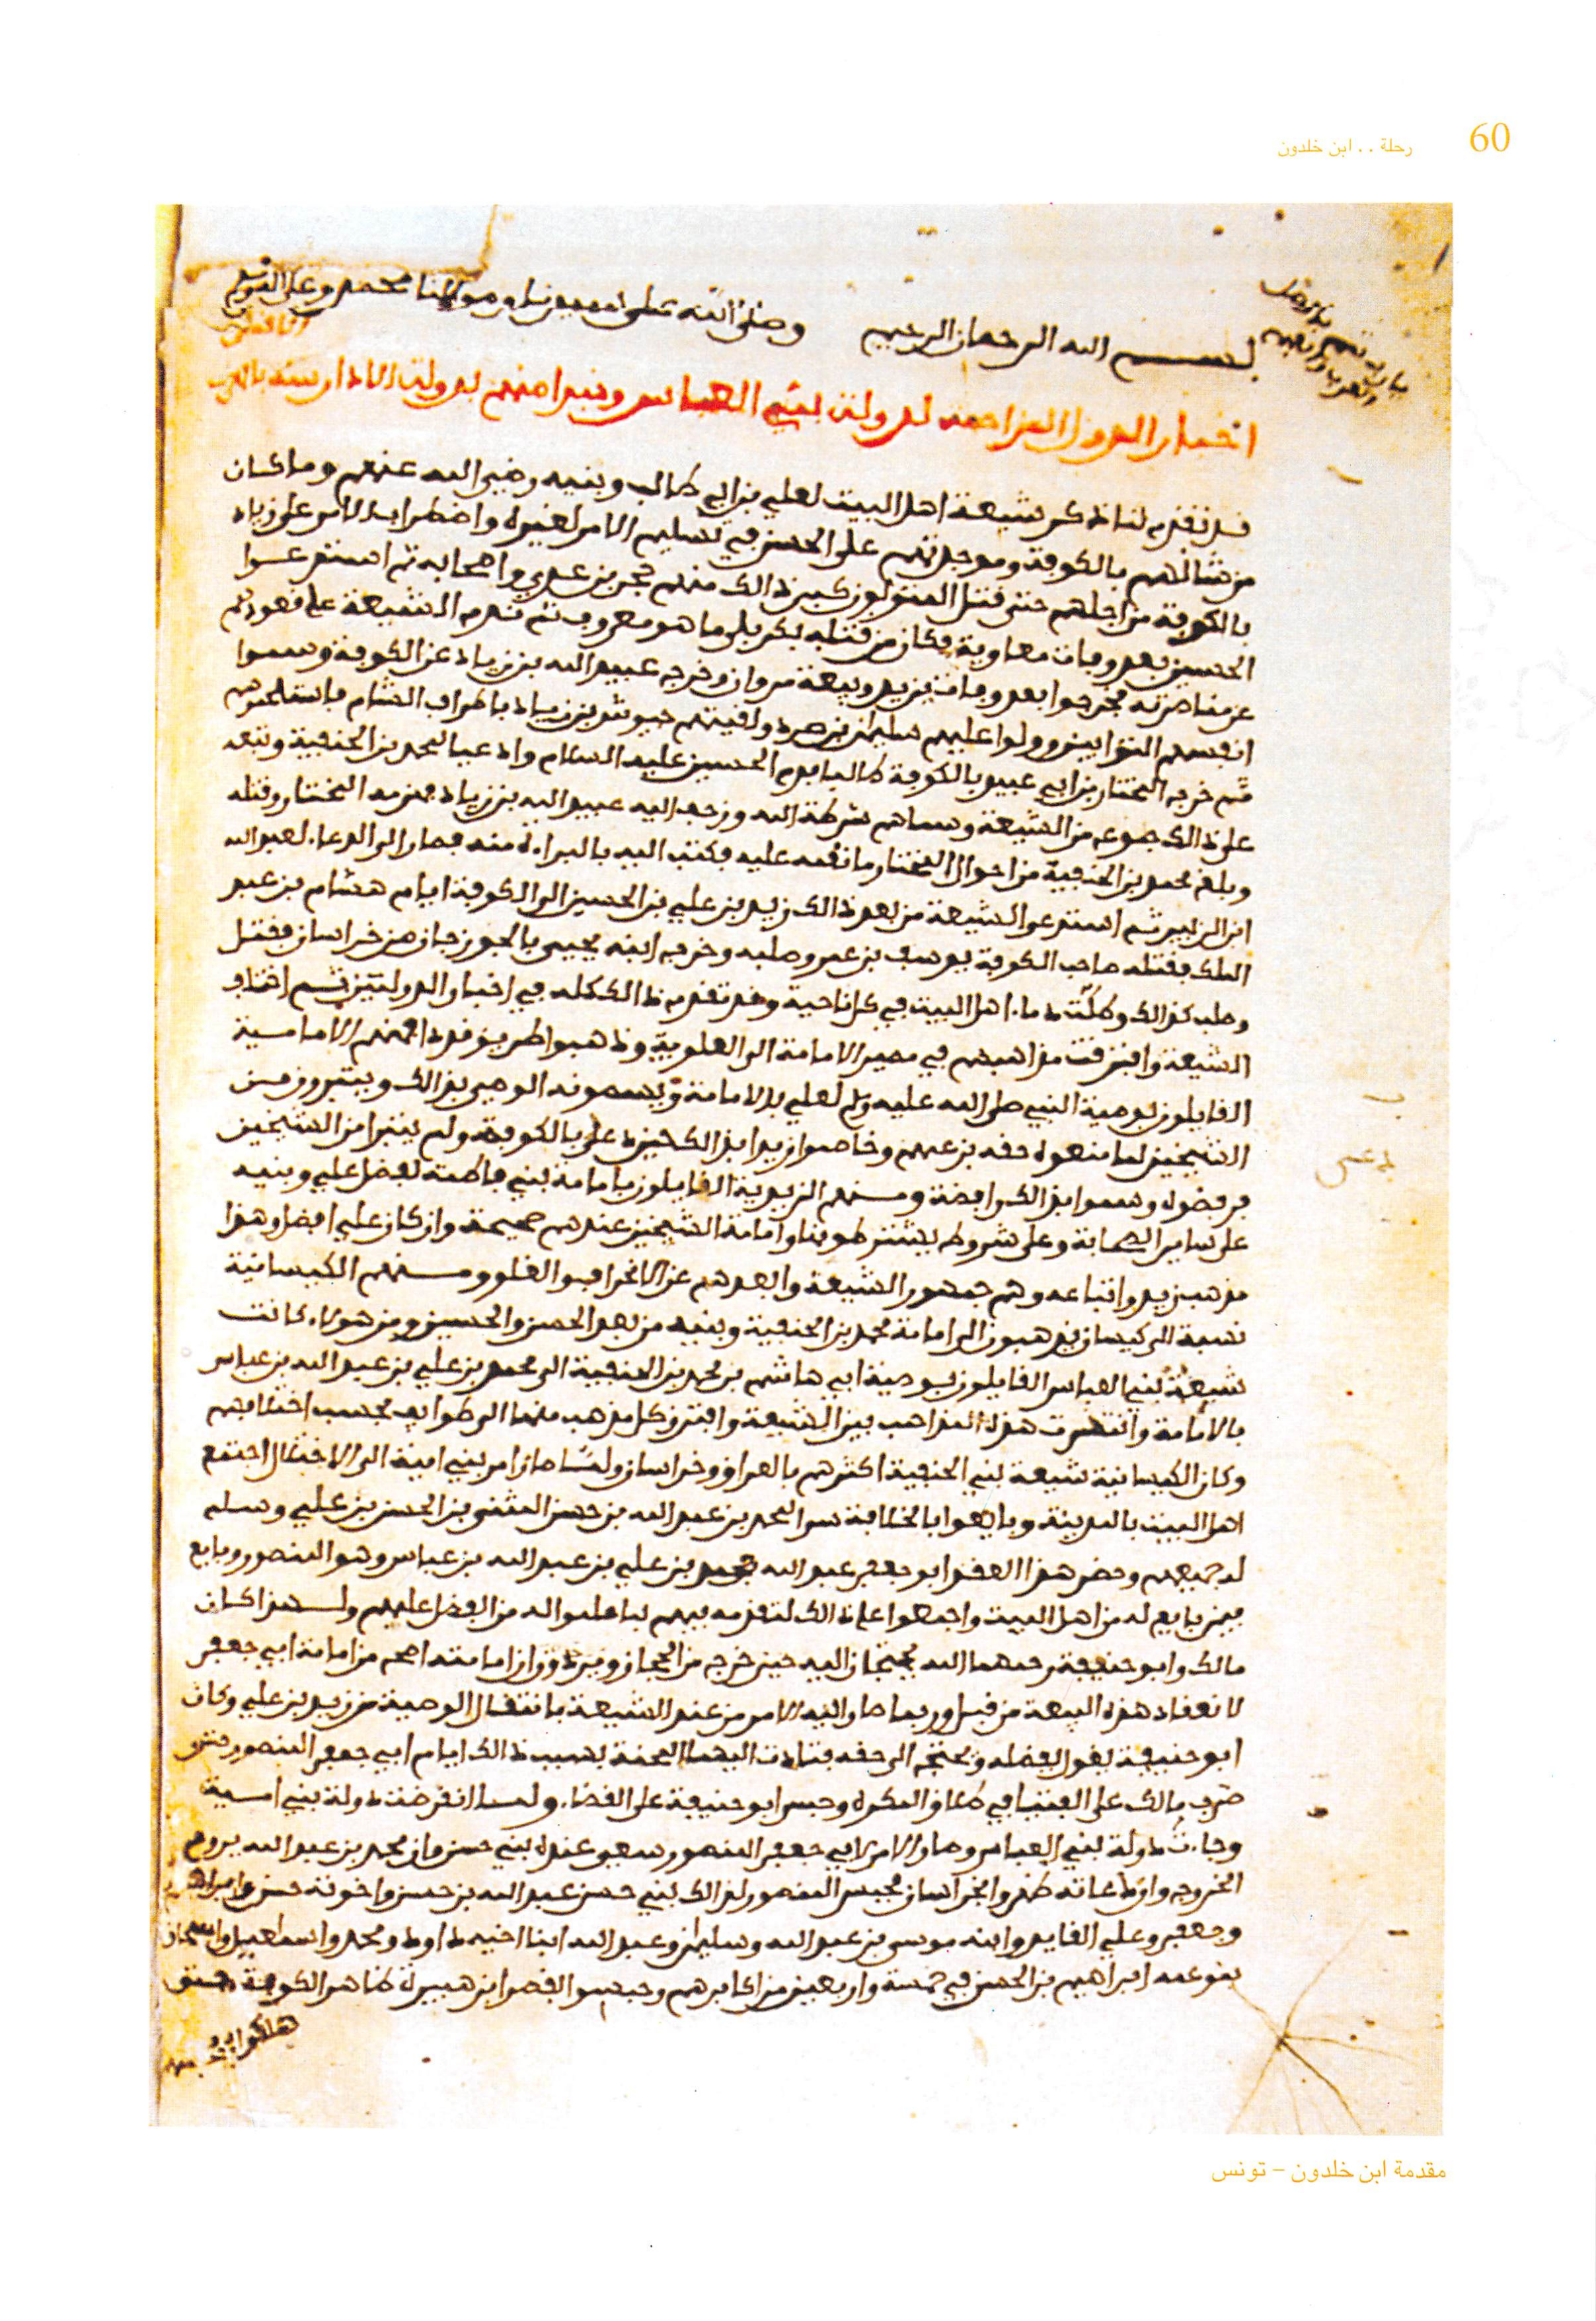 60
رحلة . . ابن خلدون
بسم الله الرحمان الرحيم وصلى الله على سيدنا ومولانا محمد وعلى اله
اخبار الدول المزاحمة لدولة بني العباس ونبدا منهم بدولة الادارسة بالمغرب الاقصى
قد تقدم لنا ذكر شيعة اهل البيت لعلي بن ابي طالب وبنيه رضي الله عنهم وما كان
من شانهم بالكوفة وموجدتهم على الحسن في تسليم الامر لغيره واضطراب الامر على زياد
بالكوفة من اجلهم حتى قتل المتولون كبر ذالك منهم حجر بن عدي واصحابه ثم استدعوا
الحسين بعد وفات معاوية فكان من قتله بكربلى ما هو معروف ثم ندم الشيعة على قعودهم
عن مناصرته فخرجوا بعد وفات يزيد وبيعة مروان وخرج عبيد الله بن زياد عن الكوفة وسموا
انفسهم التوابين وولوا عليهم سليمان بن صرد ولقيتهم جيوش بن زياد باطراف الشام فاستلحموهم
ثم خرج المختار بن ابي عبيد بالكوفة طالبا بدم الحسين عليه السلام وداعيا لمحمد بن الحنفية وتبعه
على ذالك جموعه من الشيعة وسماهم شرطة الله وزحف اليه عبيد الله بن زياد فهزمه المختار وقتله
وبلغ محمد بن الحنفية من احوال المختار ما نقمه عليه فكتب اليه بالبراءة منه فصار الى الدعاء لعبد الله
ابن الزبير ثم استدعى الشيعة من بعد ذالك زيد بن علي بن الحسين الى الكوفة ايام هشام بن عبد
الملك فقتله صاحب الكوفة يوسف بن عمر وصلبه وخرج ابنه يحيى بالجوزجان من خراسان فقتل
وصلب كذالك وطلت دماء اهل البيت في كل ناحية وقد تقدم ذالك كله في اخبار الدولتين ثم اختلف
الشيعة وافترقت مذاهبهم في مصير الامامة الى العلوية وذهبوا طرايق قددا فمنهم الامامية
القايلون بوصية النبي صلى الله عليه وسلم لعلي بالامامة ويسمونه الوصي بذالك ويتبرون من
الشيخين لما منعوه حقه بزعمهم وخاصموا زيدا بذالك حين دعى بالكوفة ولم يتبرا من الشيخين
فرفضوه وسموا بذالك رافضة ومنهم الزيدية القايلون بامامة بني فاطمة لفضل علي وبنيه
على ساير الصحابة وعلى شروط يشترطونها وامامة الشيخين عندهم صحيحة وان كان علي افضل وهذا
مذهب زيد واتباعه وهم جمهور الشيعة وابعدهم عن الانحراف والغلو ومنهم الكيسانية
نسبة الى كيسان يذهبون الى امامة محمد بن الحنفية وبنيه من بعد الحسن والحسين ومن هولاء كانت
شيعة بني العباس القايلون بوصية ابي هاشم بن محمد بن الحنفية الى محمد بن علي بن عبد الله بن عباس
بالامامة وانتشرت هذه المذاهب بين الشيعة وافترق كل مذهب منها الى طوايف بحسب اختلافهم
وكان الكيسانية شيعة بني الحنفية اكثرهم بالعراق وخراسان ولما صار امر بني امية الى الاختلال اجتمع
اهل البيت بالمدينة وبايعوا بالخلافة سرا لمحمد بن عبد الله بن حسن المثنى بن الحسن بن علي وسلم
له جميعهم وحضر هذا العقد ابو جعفر عبد الله بن محمد بن علي بن عبد الله بن عباس وهو المنصور وبايع
فيمن بايع له من اهل البيت واجمعوا على ذالك لتقدمه فيهم لما علموا له من الفضل عليهم ولهذا كان
مالك وابو حنيفة رحمهما الله يحتجان اليه حين خرج من الحجاز ويرون ان امامته اصح من امامة ابي جعفر
لانعقاد هذه البيعة من قبل وربما صار اليه الامر من عند الشيعة بانتقال الوصية من زيد بن علي وكان
ابو حنيفة يقول بفضله ويحتج الى حقه فتادت اليهما المحنة بسبب ذالك ايام ابي جعفر المنصور حتى
ضرب مالك على الفتيا في طلاق المكره وحبس ابو حنيفة على القضاء ولما انقرضت دولة بني امية
وجاءت دولة بني العباس وصار الامر لابي جعفر المنصور سعى عنده ببني حسن وان محمد بن عبد الله يروم
الخروج وان دعاته ظهروا بخراسان فحبس المنصور لذالك بني حسن عبد الله بن حسن واخوته حسن وابراهيم
وجعفر وعلي القايد وابنه موسى بن عبد الله وسليمان وعبد الله ابنا اخيه داود ومحمد واسماعيل واسحاق
بنو عمه ابراهيم بن الحسن في خمسة واربعين من اكابرهم وحبسوا بقصر ابن هبيرة ظاهر الكوفة حتى
هلكوا في
مقدمة ابن خلدون – تونس